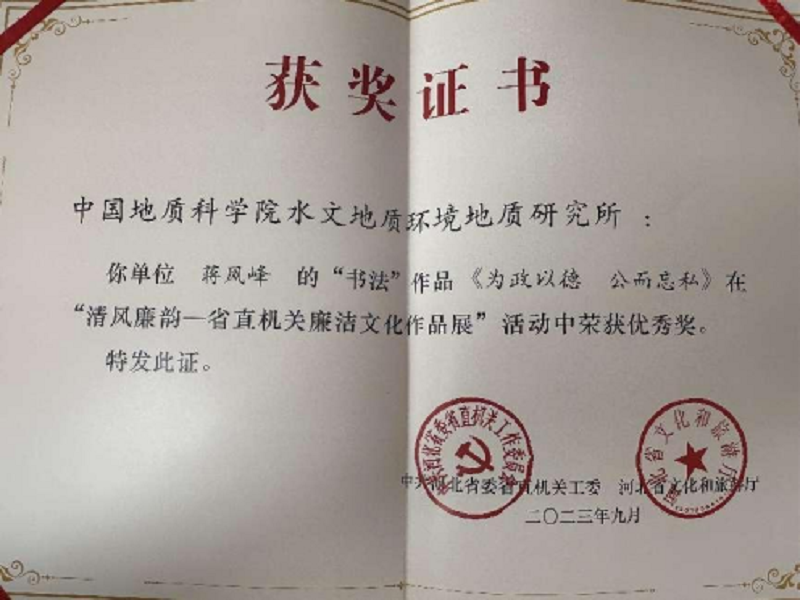 获奖证书
中国地质科学院水文地质环境地质研究所：
你单位 蒋风峰 的“书法”作品《为政以德 公而忘私》在
“清风廉韵—省直机关廉洁文化作品展”活动中荣获优秀奖。
特发此证。
中共河北省委省直机关工作委员会
河北省文化和旅游厅
中共河北省委省直机关工委 河北省文化和旅游厅
二〇二三年九月